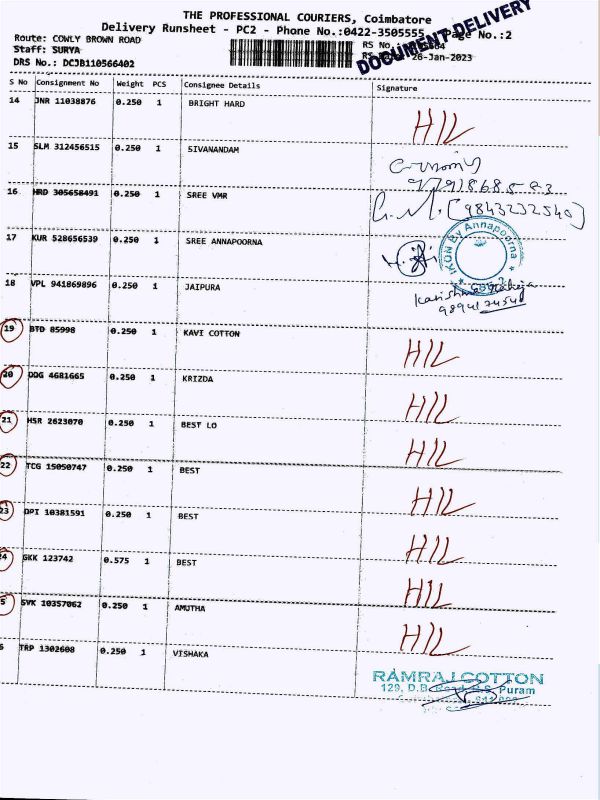 THE PROFESSIONAL COURIERS, Coimbatore
Delivery Runsheet - PC2 - Phone No.:0422-3505555 Page No.:2
DOCUMENT DELIVERY
Route: COWLY BROWN ROAD RS No.
Staff: SURYA 26-Jan-2023
DRS No.: DCJB110566402
S No Consignment No Weight PCS Consignee Details Signature
14 JNR 11038876 0.250 1 BRIGHT HARD HIL
15 SLM 312456515 0.250 1 SIVANANDAM
16 HRD 305658491 0.250 1 SREE VMR [9843232540]
17 KUR 528656539 0.250 1 SREE ANNAPOORNA IKON By Annapoorna
18 VPL 941869896 0.250 1 JAIPURA
19 BTD 85998 0.250 1 KAVI COTTON HIL
20 DDG 4681665 0.250 1 KRIZDA HIL
21 HSR 2623070 0.250 1 BEST LO HIL
22 TCG 15050747 0.250 1 BEST HIL
23 DPI 10381591 0.250 1 BEST HIL
24 GKK 123742 0.575 1 BEST HIL
5 SVK 10357062 0.250 1 AMUTHA HIL
6 TRP 1302608 0.250 1 VISHAKA
RAMRAJ COTTON
129, D.B. Road, R.S. Puram